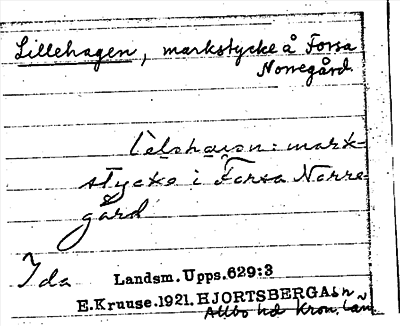 Lillehagen, markstycke å Forsa
Norregård.
mark-
stycke i Forsa Norre-
gård
Ida
Landsm. Upps. 629:3
E. Kruuse. 1921. HJORTSBERGA sn
Allbo hd Kron. län